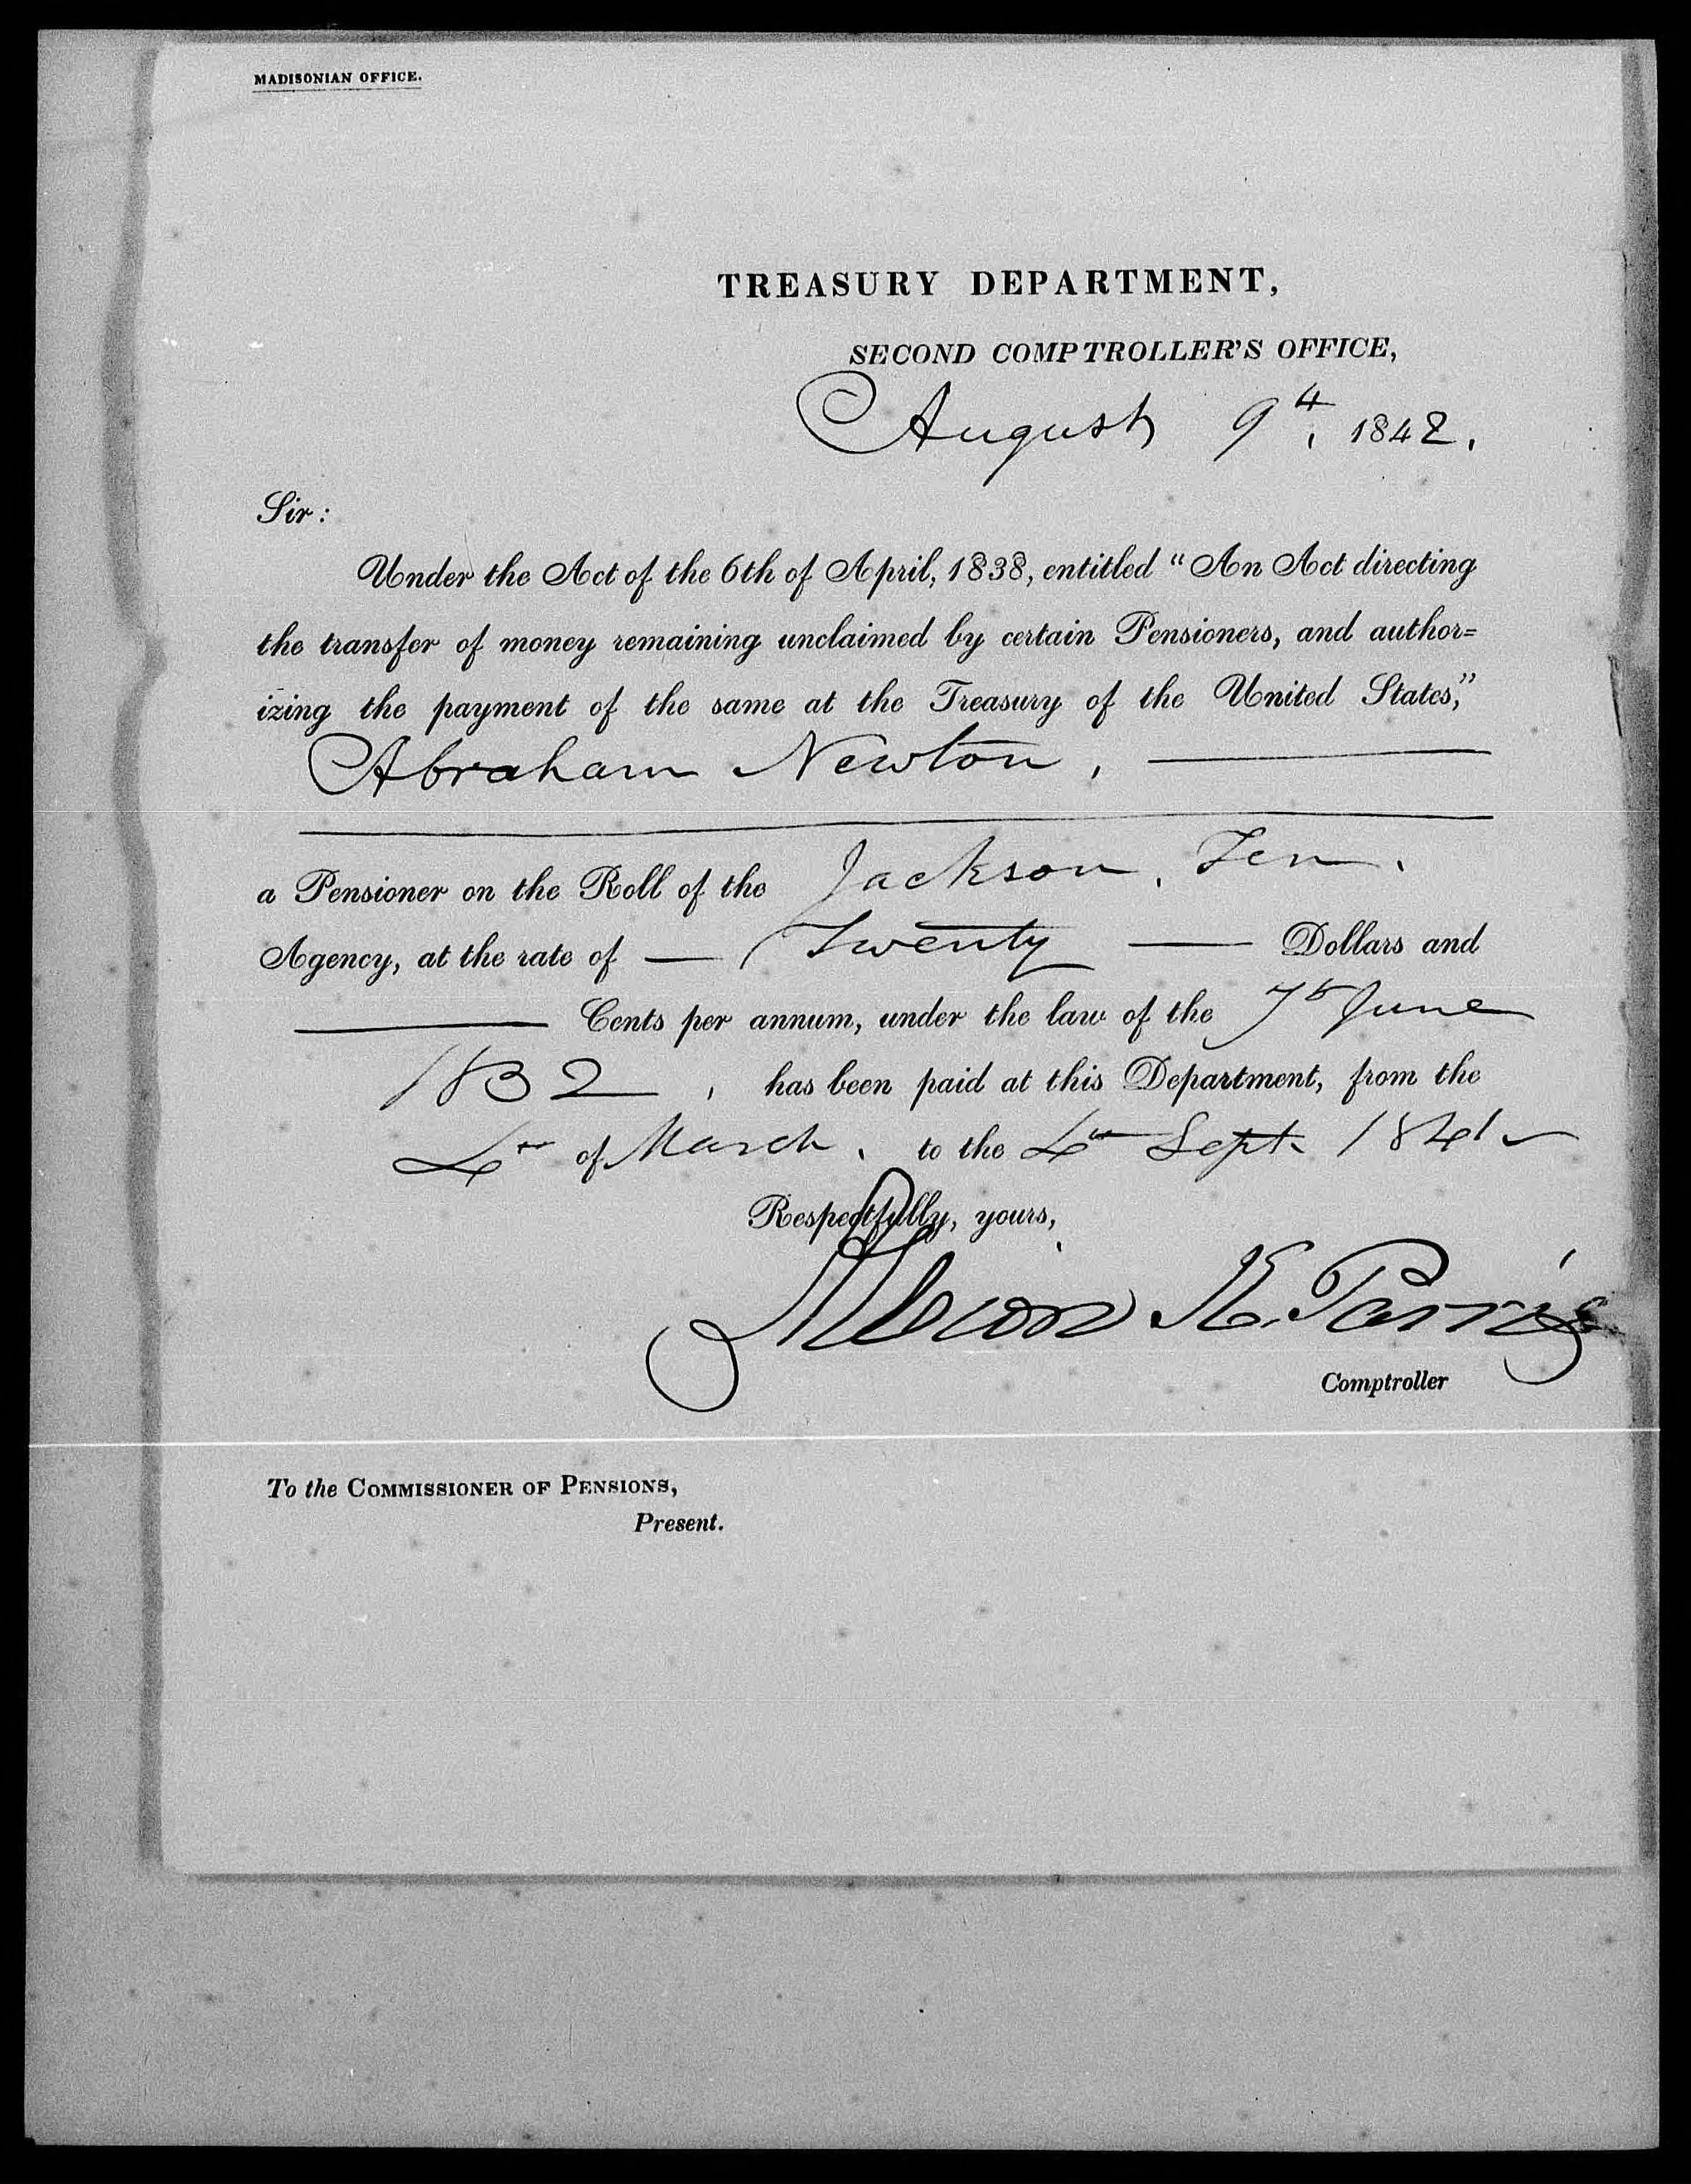 MADISONIAN OFFICE.
TREASURY DEPARTMENT,
SECOND COMPTROLLER'S OFFICE,
August 9th, 1842.
Sir:
Under the Act of the 6th of April, 1838, entitled "An Act directing
the transfer of money remaining unclaimed by certain Pensioners, and author=
izing the payment of the same at the Treasury of the United States,"
Abraham Newton,
a Pensioner on the Roll of the Jackson, Ten.
Agency, at the rate of — Twenty — Dollars and
— Cents per annum, under the law of the 7th June
1832, has been paid at this Department, from the
4th of March, to the 4th Sept. 1841
Respectfully, yours,
Albion K. Parris
Comptroller
To the COMMISSIONER OF PENSIONS,
Present.